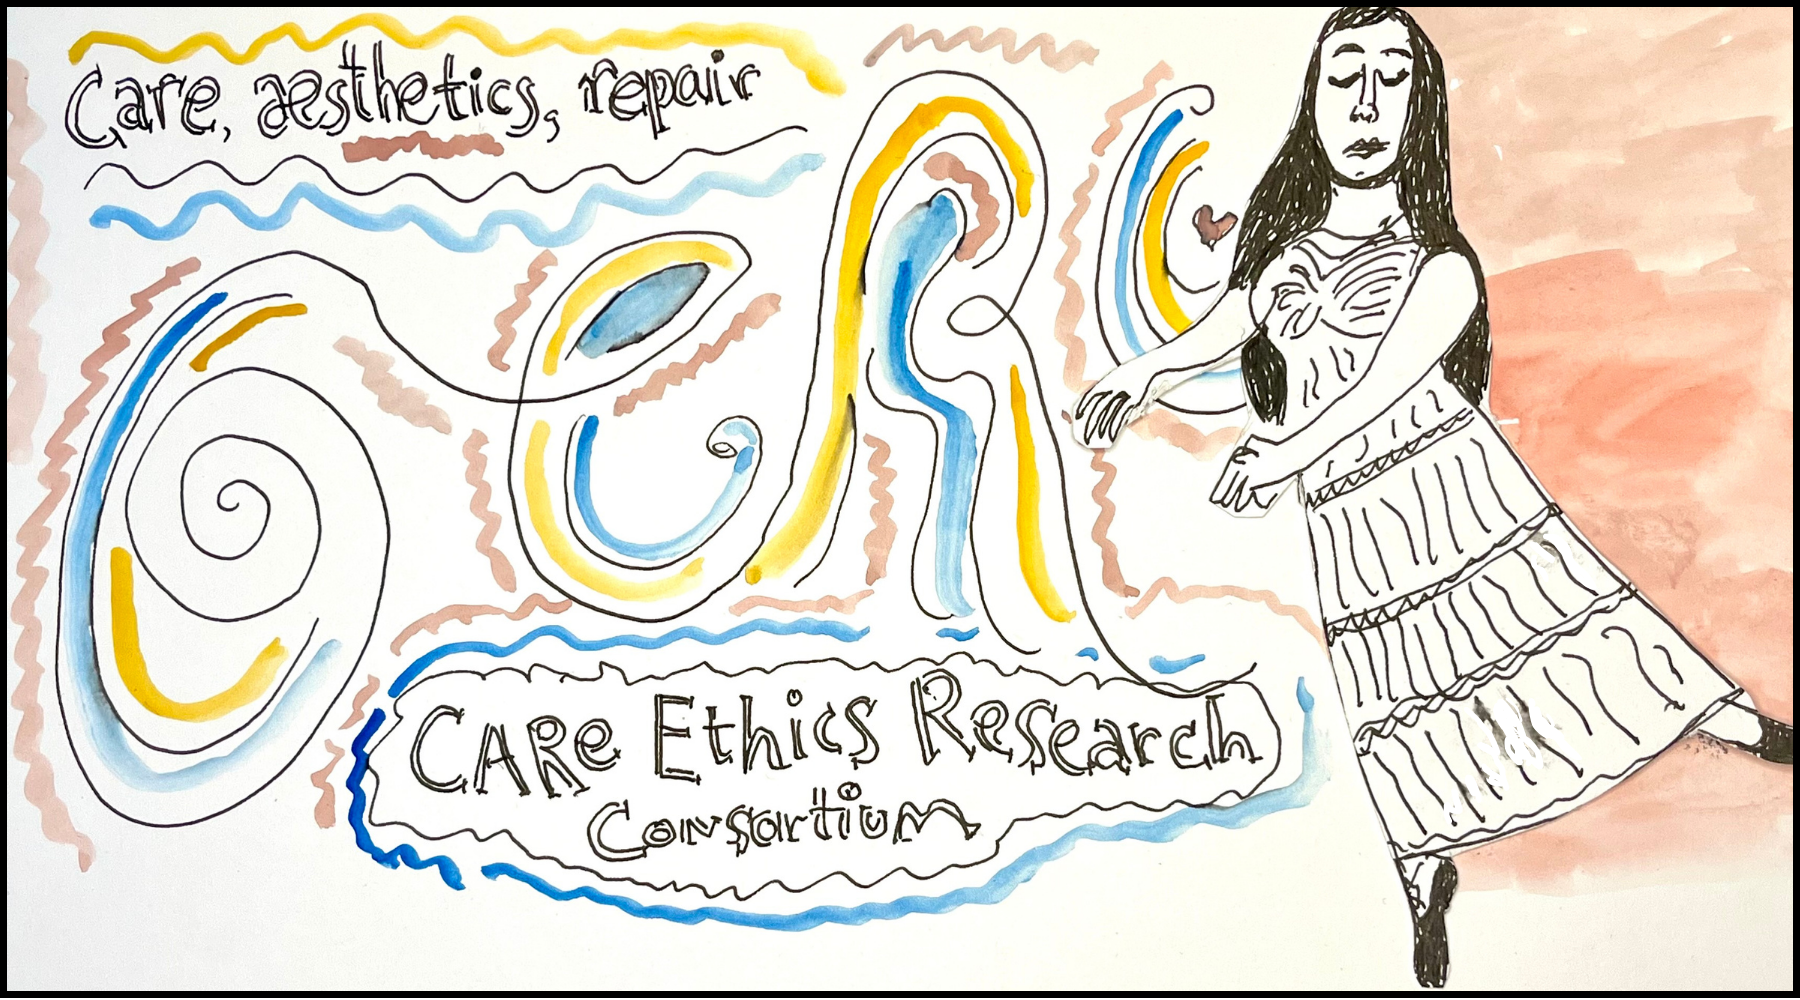 Care, aesthetics, repair
CeRC
CARe Ethics Research
Consortium